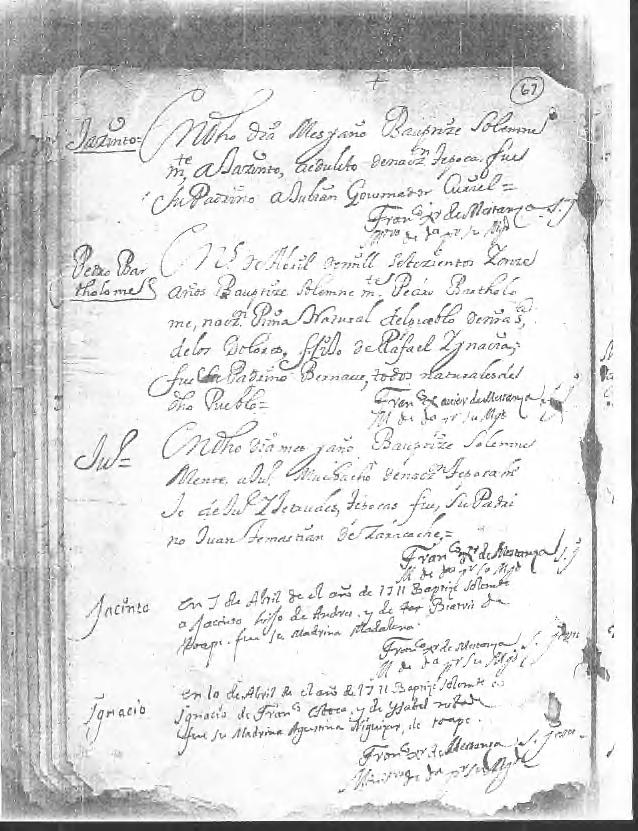 67
Jazinto= En dho dia Mes y año Baptize Solemne
mte, a Jazinto, adulto de nacn Tepoca. fue
Su Padrino a Julian Governador Curiel=
Franco xr de Mestanza S. J
Mro de Da pr su Mgd
Pedro Bar
tholome
de Abril de mill Setezientos Honze
años Baptize Solemne mte Pedro Bartholo
me, nacn Pima Natural del pueblo de nra Sa
de los Dolores, hijo de Rafael Ygnacia,
fue Padrino Bernave, todos naturales del
dho Pueblo=
Franco Xavier de Mestanza S. J
M de Da pr su Mgd
Jul=
En dho dia mes y año Baptize Solemne
Mente, a Jul Muchacho de nacn Tepoca hi
Jo de Jul Tepocas fue, Su Padri
no Juan Semastian de
Franco xr de Mestanza S. J
M de Da pr su Mgd
Jacinto
en 7 de Abril de el año de 1711 Baptize Solemte
a Jacinto hijo de Andres y de
toape. fue su Madrina Madalena.
Franco xr de Mestanza S. J
M de Da pr su Mgd
Ignacio
en 10 de Abril de el año de 1711 Baptize Solemte a
Ignacio de Franco y de Ysabel
fue su Madrina Agustina de toape.
Franco xr de Mestanza S.
Ministro de Da pr su Mgd